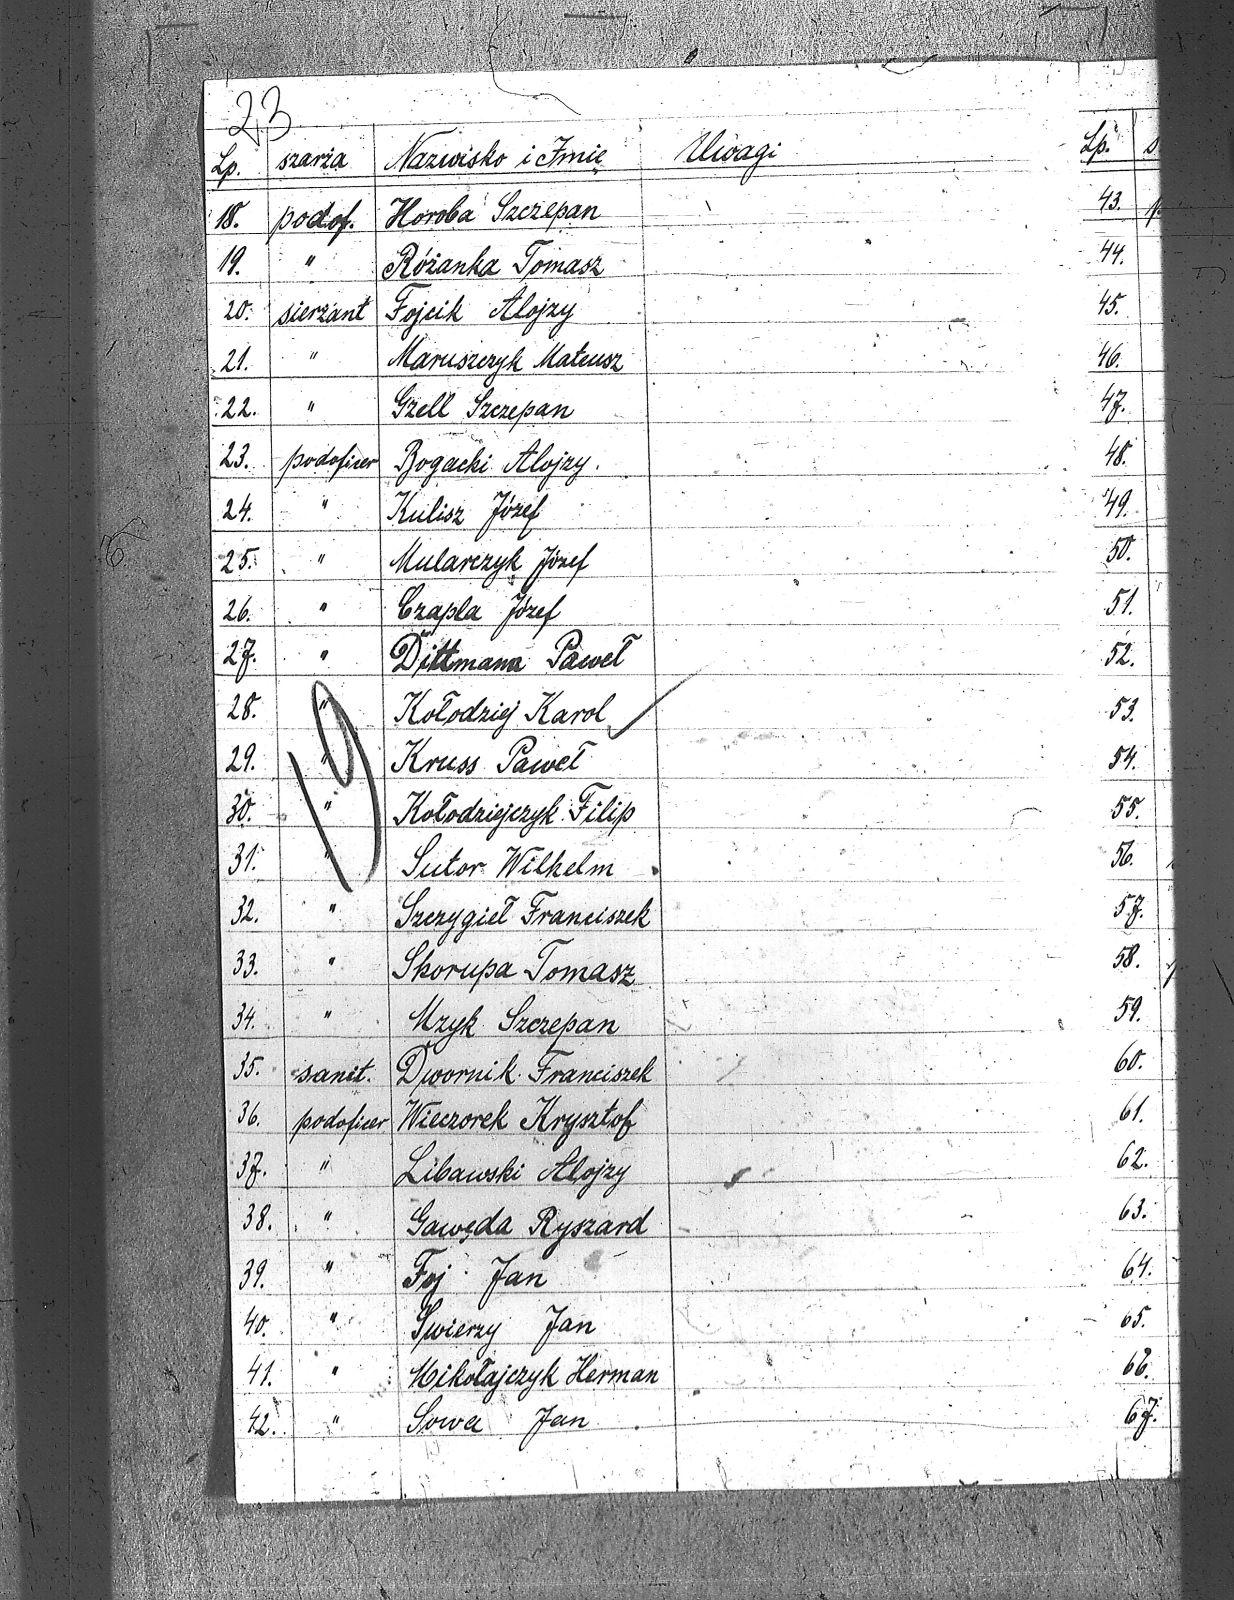 23
Lp. szarża Nazwisko i Imię Uwagi Lp.
18. podof. Horoba Szczepan 43.
19. " Różanka Tomasz 44.
20. sierżant Fojcik Alojzy 45.
21. " Maruszczyk Mateusz 46.
22. " Gzell Szczepan 47.
23. podoficer Bogacki Alojzy. 48.
24. " Kulisz Józef 49.
25. " Mularczyk Józef 50.
26. " Czapla Józef 51.
27. " Dittmann Paweł 52.
28. " Kołodziej Karol 53.
29. " Kruss Paweł 54.
30. " Kołodziejczyk Filip 55.
31. " Sutor Wilhelm 56.
32. " Szczygieł Franciszek 57.
33. " Skorupa Tomasz 58.
34. " Mzyk Szczepan 59.
35. sanit. Dwornik Franciszek 60.
36. podoficer Wieczorek Krysztof 61.
37. " Libawski Alojzy 62.
38. " Gawęda Ryszard 63.
39. " Foj Jan 64.
40. " Swierzy Jan 65.
41. " Mikołajczyk Herman 66.
42. " Sowa Jan 67.
19